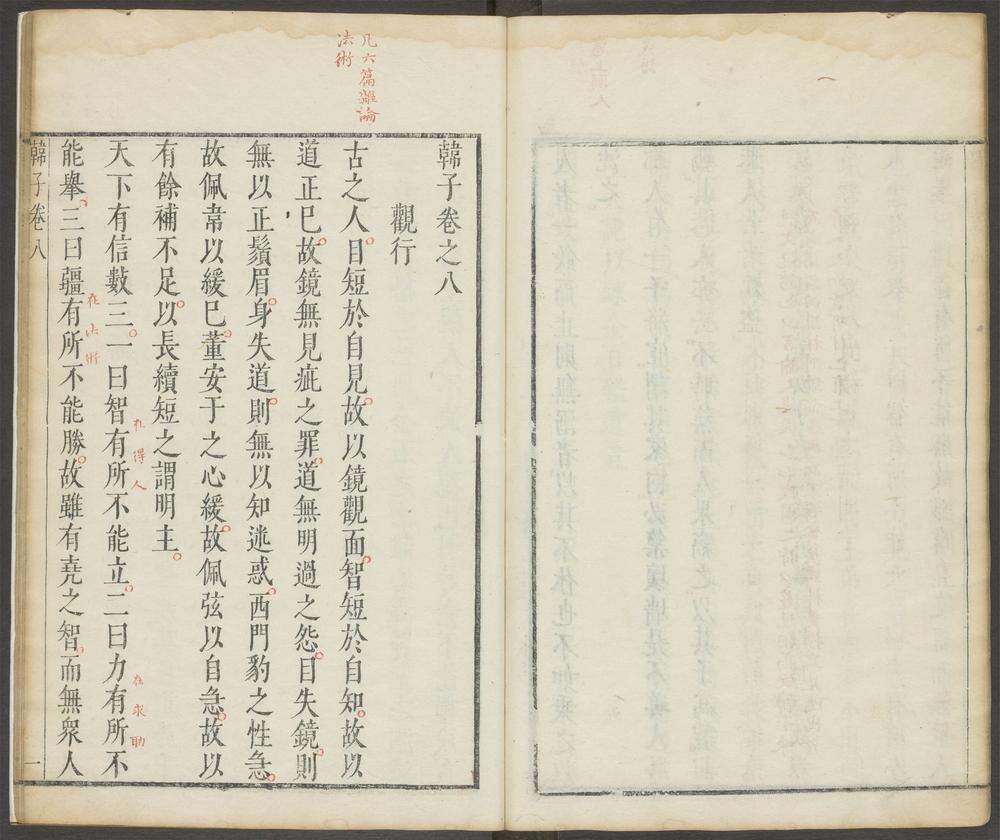 凡六篇雜論
法術
韓子卷之八
觀行
古之人目短於自見故以鏡觀面智短於自知故以
道正巳故鏡無見疵之罪道無明過之怨目失鏡則
無以正鬚眉身失道則無以知迷惑西門豹之性急
故佩韋以緩巳董安于之心緩故佩弦以自急故以
有餘補不足以長續短之謂明主
天下有信數三一曰智有所不能立二曰力有所不
在得人
在求助
能舉三曰彊有所不能勝故雖有堯之智而無衆人
在法術
韓子卷八
一